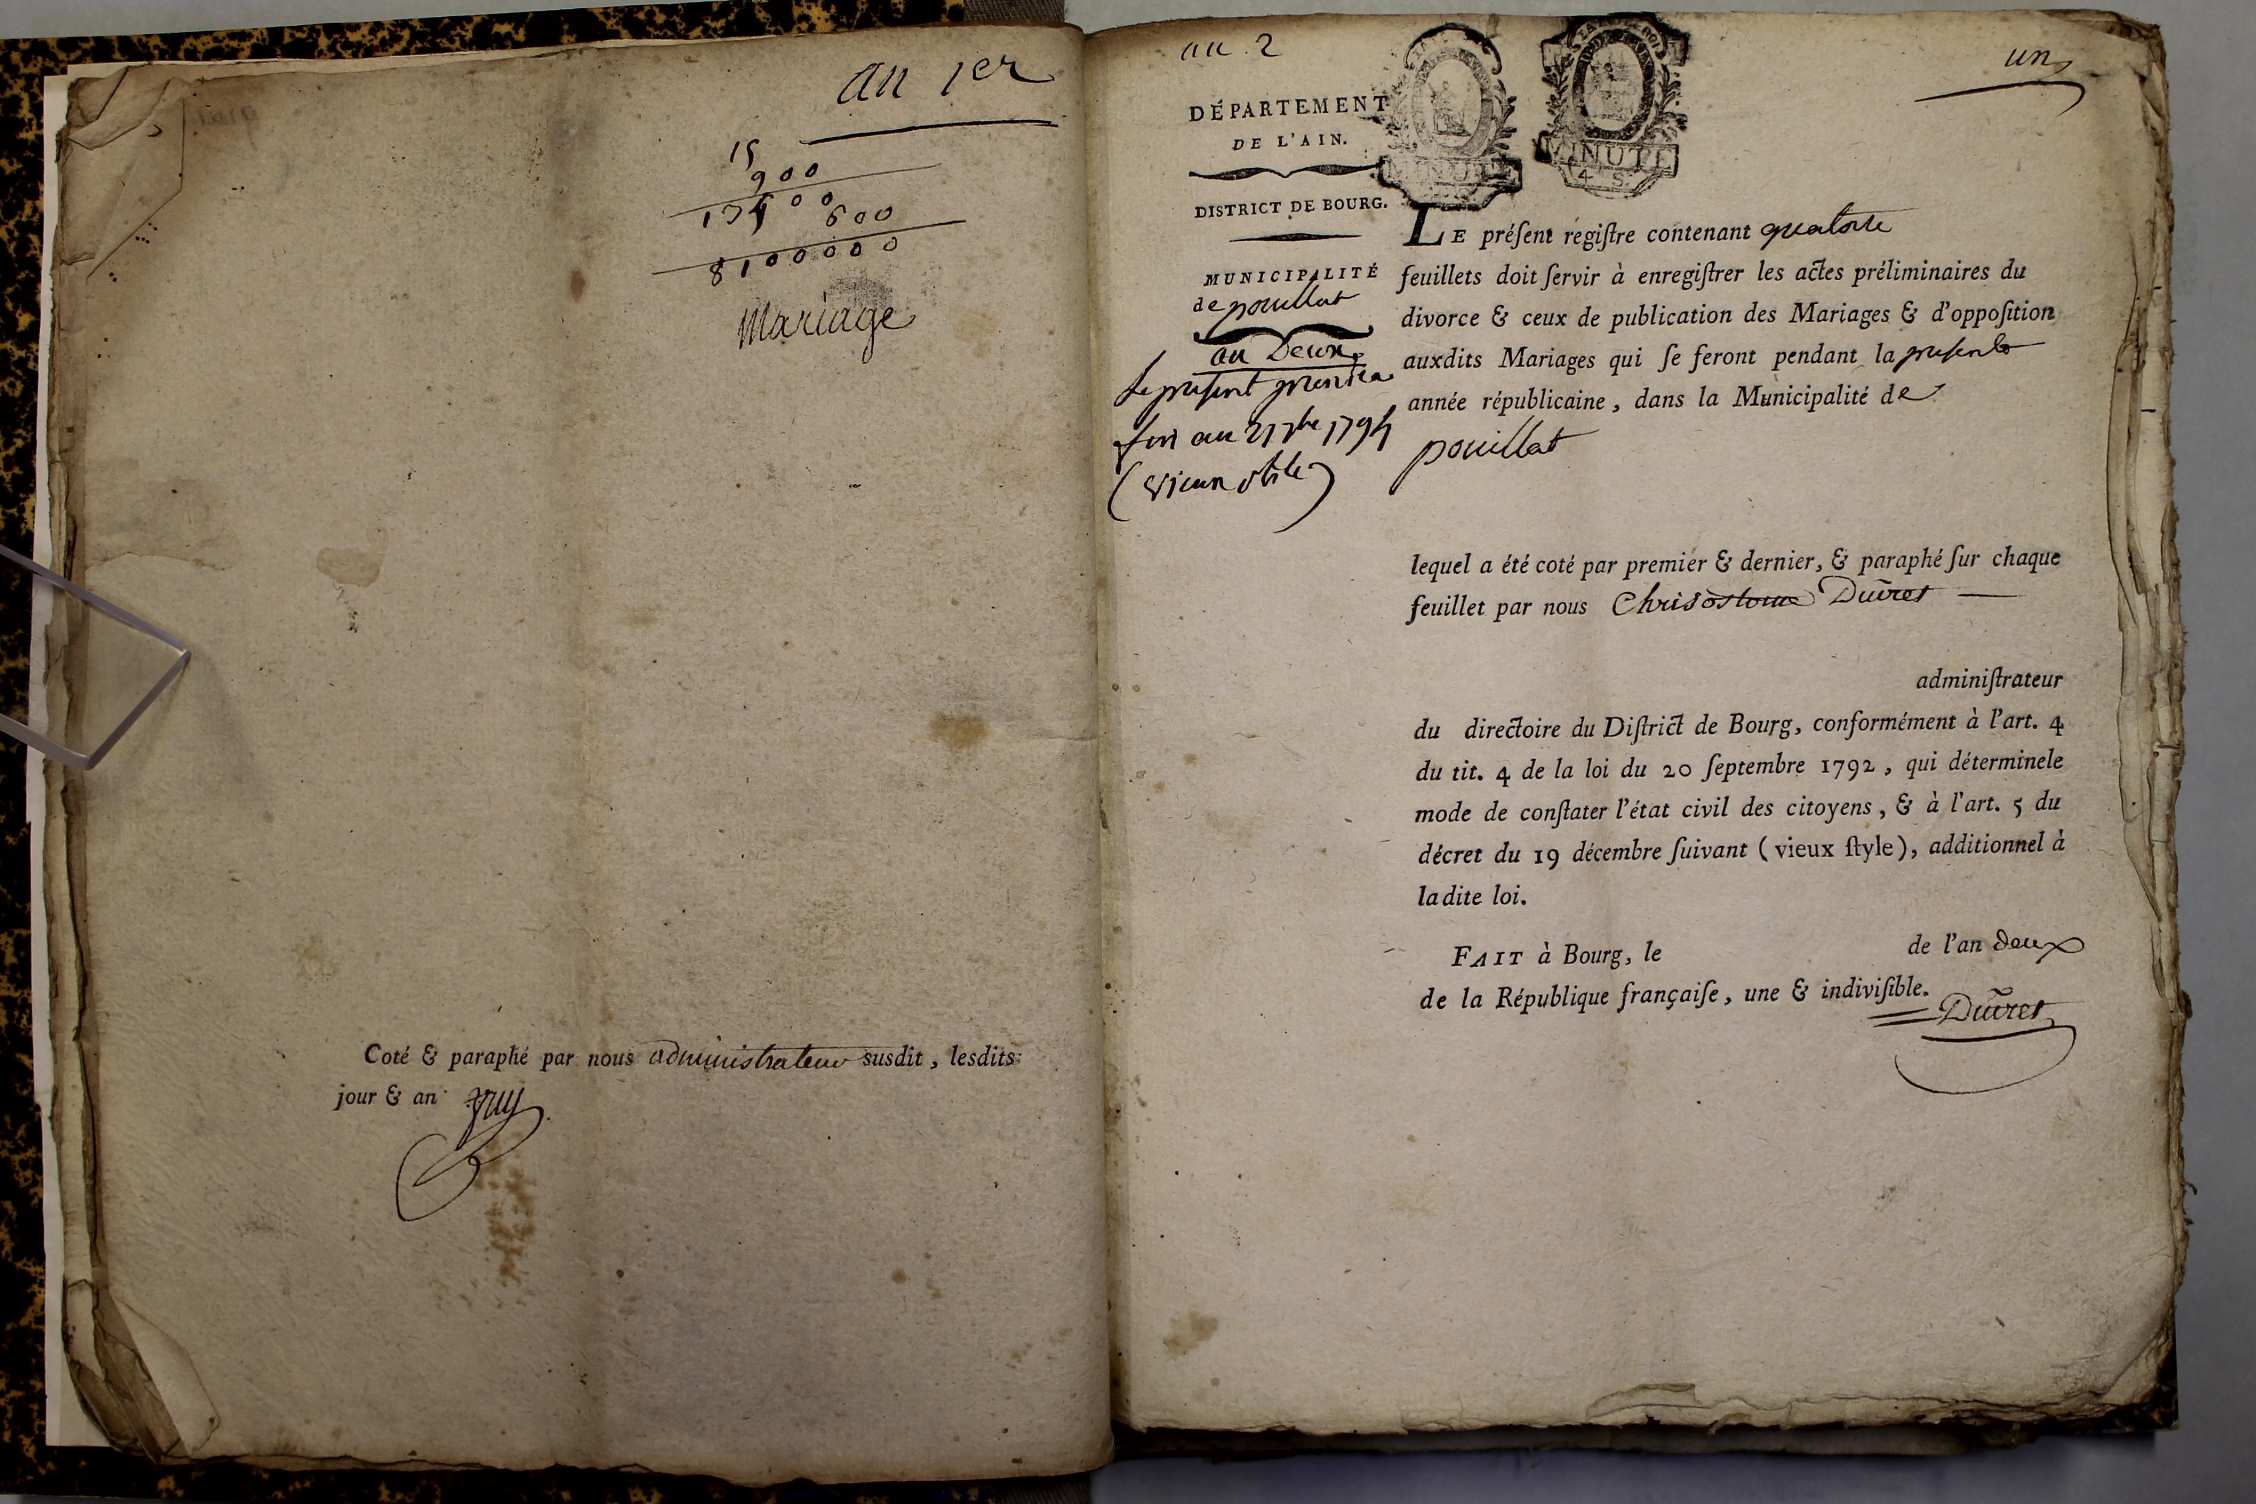 an 1er
15
900
13500
600
8100000
Mariage
Coté & paraphé par nous administrateur susdit, lesdits
jour & an
an 2
un
DÉPARTEMENT
DE L'AIN.
DISTRICT DE BOURG.
MUNICIPALITÉ
de pouillat
an Deux
Le present
fini au 1794
(vieux stile)
MINUTE
MINUTE
4 S.
LE préſent régiſtre contenant quatorze
feuillets doit ſervir à enregiſtrer les actes préliminaires du
divorce & ceux de publication des Mariages & d'oppoſition
auxdits Mariages qui ſe feront pendant la presente
année républicaine, dans la Municipalité de
pouillat
lequel a été coté par premier & dernier, & paraphé ſur chaque
feuillet par nous Chrisostome Duret
adminiſtrateur
du directoire du Diſtrict de Bourg, conformément à l'art. 4
du tit. 4 de la loi du 20 ſeptembre 1792, qui déterminele
mode de conſtater l'état civil des citoyens, & à l'art. 5 du
décret du 19 décembre ſuivant (vieux ſtyle), additionnel à
ladite loi.
FAIT à Bourg, le de l'an deux
de la République françaiſe, une & indiviſible.
Duret